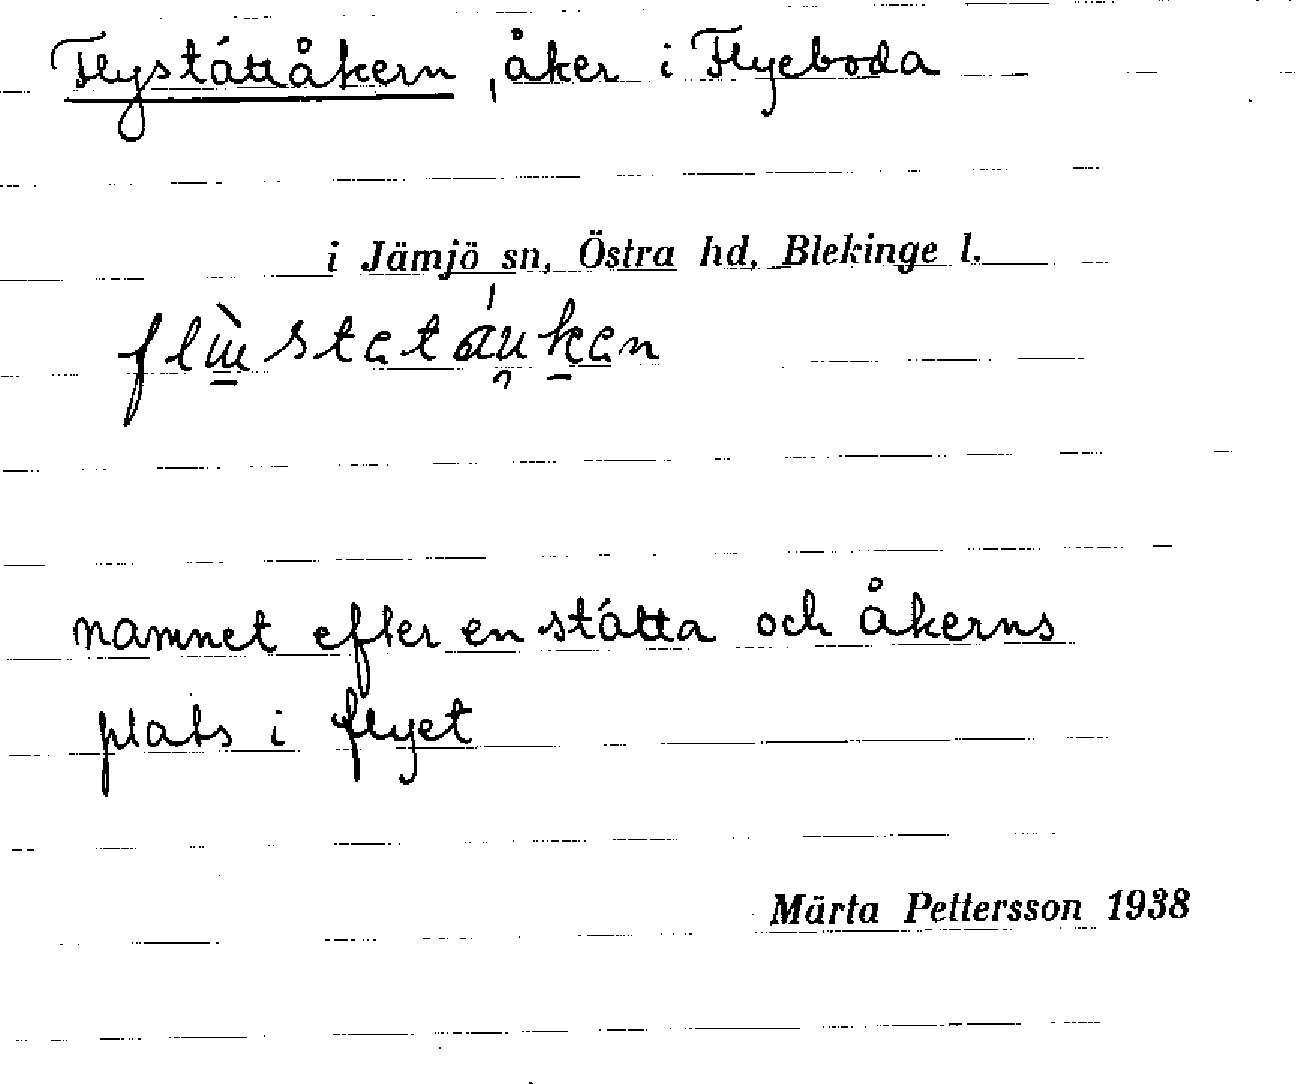 Flystáttåkern, åker i Flyeboda
i Jämjö sn, Östra hd, Blekinge l.
namnet efter en státta och åkerns
plats i flyet
Märta Pettersson 1938